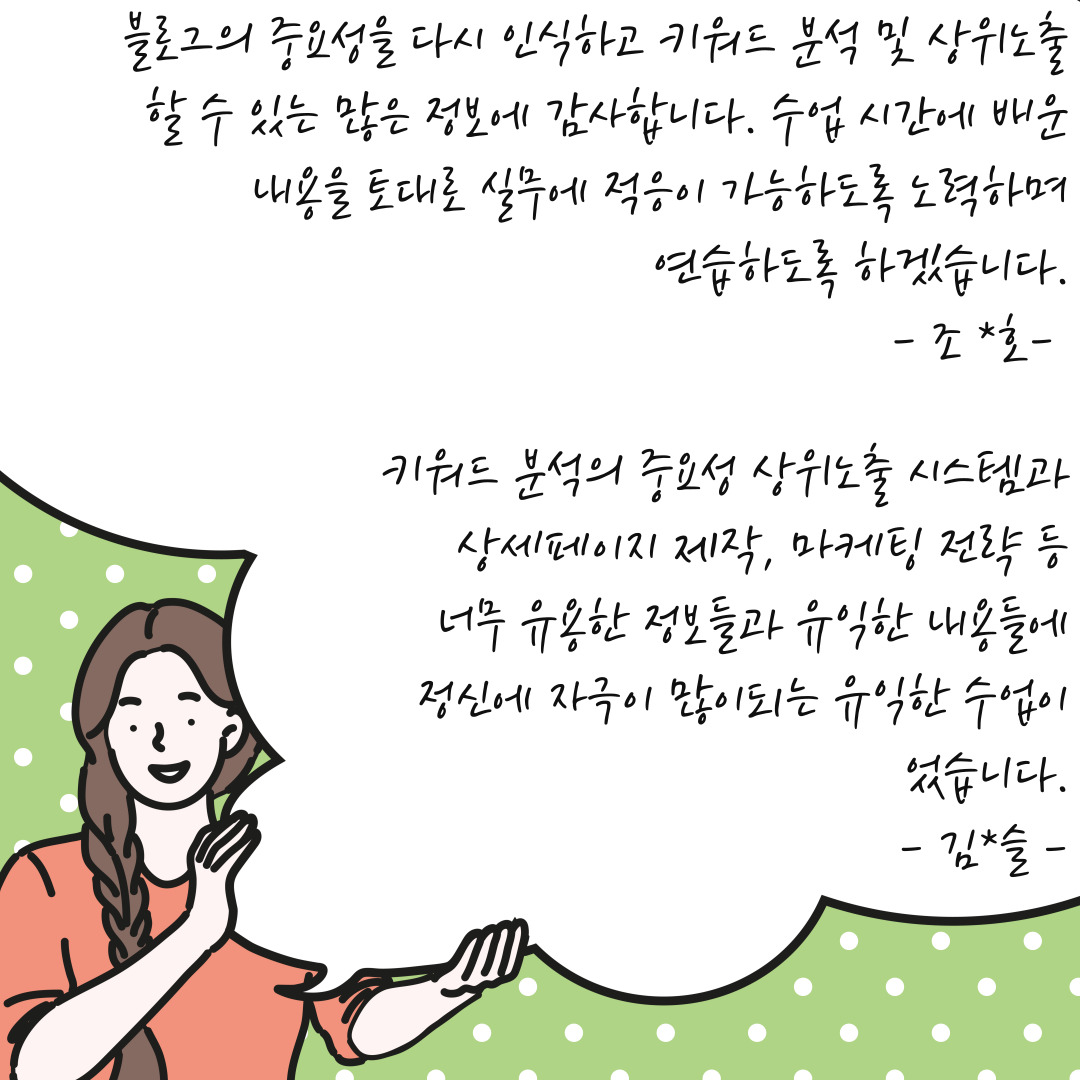 블로그의 중요성을 다시 인식하고 키워드 분석 및 상위노출
할 수 있는 많은 정보에 감사합니다. 수업 시간에 배운
내용을 토대로 실무에 적응이 가능하도록 노력하며
연습하도록 하겠습니다.
- 조 *호-
키워드 분석의 중요성 상위노출 시스템과
상세페이지 제작, 마케팅 전략 등
너무 유용한 정보들과 유익한 내용들에
정신에 자극이 많이되는 유익한 수업이
었습니다.
- 김*슬 -